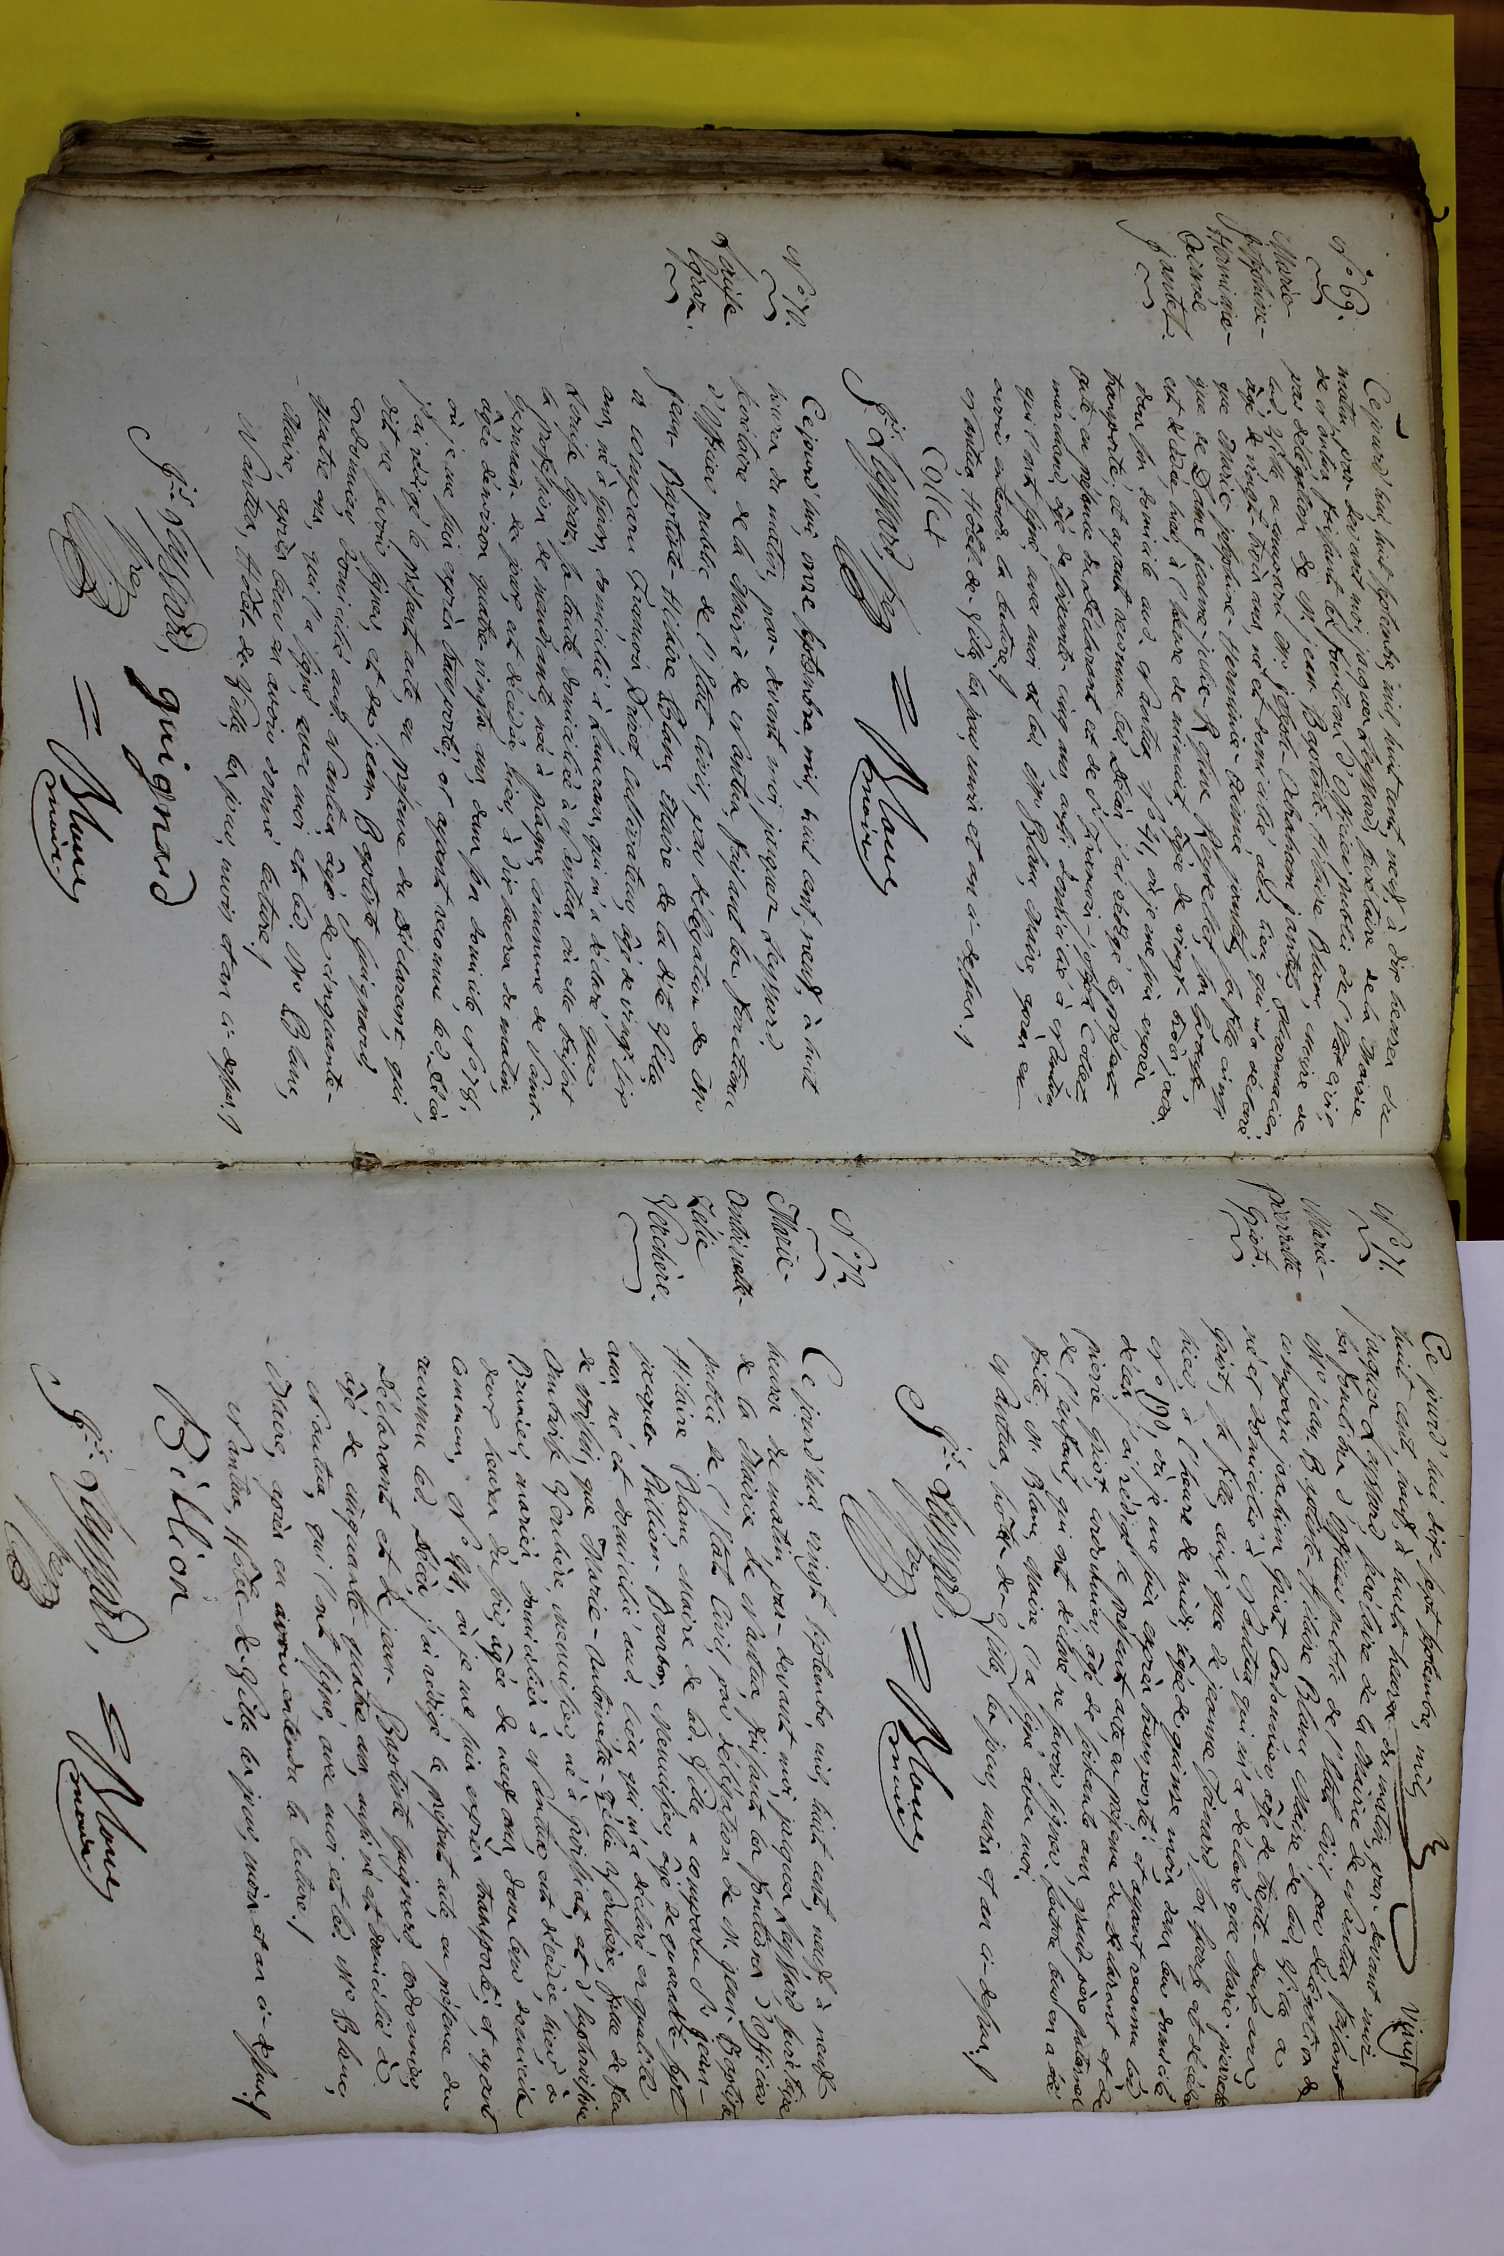 N.° 69.
Marie-
Joséphine-
Herminie-
Aimée
jantet.
Cejourd'hui huit septembre, mil huit cent neuf, à dix heures du
matin, par devant moi, jacques Leyssard, secrétaire de la Mairie
de Nantua faisant les fonctions d'officier public de l'État civil,
par délégation de M. jean Baptiste Hilaire Blanc, maire de
lad. Ville a comparu M. joseph Abraham jantet, pharmacien
âgé de vingt trois ans, né et domicilié aud. lieu, qui m'a déclaré
que Marie joséphine Herminie Aimée jantet, sa fille ainsi
que de Dame jeanne-julie-R Reydellet, son épouse,
est décédée hier à l'heure de minuit, âgée de vingt trois jours
dans son domicile aud. Nantua, N.° 41, où je me suis exprès
transporté, et ayant reconnu led. Décès, j'ai rédigé le présent
acte, en présence du Déclarant et de S.r François-joseph Collet
marchand, âgé de soixante cinq ans, aussi domicilié à Nantua
qui l'ont signé, avec moi et led. M. Blanc, Maire, après en
avoir entendu la lecture,
Nantua, Hôtel de Ville, les jour, mois et an ci-dessus.
Collet
J.s Leyssard, sre
= Blanc
maire
N.° 70.
Louise
Egraz.
Cejourd'hui, onze septembre, mil, huit cent, neuf, à huit
heures du matin, par-devant moi, jacques Leyssard
secrétaire de la Mairie de Nantua, faisant les fonctions
d'officier public de l'État civil, par délégation de M.
jean-Baptiste-Hilaire Blanc, Maire de la dite Ville,
a comparu François Livet, cultivateur, âgé de vingt six
ans, né à Giron, domicilié à Lancrans, qui m'a déclaré, que
Louise Egraz, sa tante domiciliée à Nantua, où elle faisait
la profession de mendiante, née à plagne, commune de Saint-
Germain de joux, est décédée, hier, à dix heures du matin,
âgée d'environ quatre-vingts ans, dans son domicile N.° 78,
où je me suis exprès transporté, et ayant reconnu, led. Décès
j'ai rédigé le présent acte, en présence du Déclarant, qui
dit ne savoir signer, et de jean Baptiste Guignard
cordonnier, domicilié aud. Nantua, âgé de cinquante-
quatre ans, qui l'a signé, avec moi et led. M. Blanc,
Maire, après leur en avoir donné lecture,
Nantua, Hôtel de Ville, les jour, mois et an ci-dessus.
J.s Leyssard, guignard
sre
= Blanc
maire
Vingt
N.° 71.
Marie-
pierrette
Griot.
Ce jourd'hui dix sept septembre, mil,
huit cent, neuf, à huit heures du matin, par-devant moi
jacques Leyssard, secrétaire de la Mairie de Nantua, faisant
les fonctions d'officier public de l'État civil, par délégation de
M. jean Baptiste Hilaire Blanc Maire de lad. Ville a
comparu joachim Griot Cordonnier, âgé de trente-deux ans
né et domicilié à Nantua, qui m'a déclaré que Marie-pierrette
Griot, sa fille, ainsi que de jeanne, son épouse est décédée
hier, à l'heure de midi, âgée de quinze mois, dans leur domicile
N.° 190, où je me suis exprès transporté; et ayant reconnu led.
décès, j'ai rédigé le présent acte en présence du Déclarant et de
pierre Griot, cordonnier, âgé de soixante ans, grand père paternel
de l'enfant, qui ont déclaré ne savoir signer, lecture leur en a été
faite, M. Blanc, Maire, l'a signé, avec moi.
Nantua, hôtel de Ville, les jour, mois et an ci-dessus.
J.s Leyssard,
sre = Blanc
maire
N.° 72.
Marie-
Antoinette-
Zélie
Verchère.
Ce jourd'hui, vingt septembre, mil, huit cent, neuf, à neuf
heures du matin, par-devant moi, jacques Leyssard, secrétaire
de la Mairie de Nantua, faisant les fonctions d'officier
public de l'État Civil, par délégation de M. jean-Baptiste
Hilaire Blanc, Maire de lad. Ville, a comparu S.r jean-
jacques Billion, Menuisier, âgé de quarante-sept
ans, né et domicilié aud. lieu, qui m'a déclaré en qualité
de, que Marie-Antoinette-Zélie Verchère, fille de feu
Ambroise Verchère, menuisier, né à, et d'
Brunier, mariés, domiciliés à Nantua, est décédée, hier, à
deux heures du soir, âgée de neuf ans, dans leur domicile
commun, N.° 94, où je me suis exprès, transporté; et ayant
reconnu led. Décès, j'ai rédigé, le présent acte, en présence du
déclarant et de jean Baptiste Guignard, cordonnier,
âgé de cinquante-quatre ans, aussi né et domicilié à
Nantua, qui l'ont signé, avec moi et led. M. Blanc,
Maire, après en avoir entendu la lecture.
Nantua, Hôtel-de-Ville, les jour, mois et an ci-dessus.
Billion
J.s Leyssard, = Blanc
sre maire